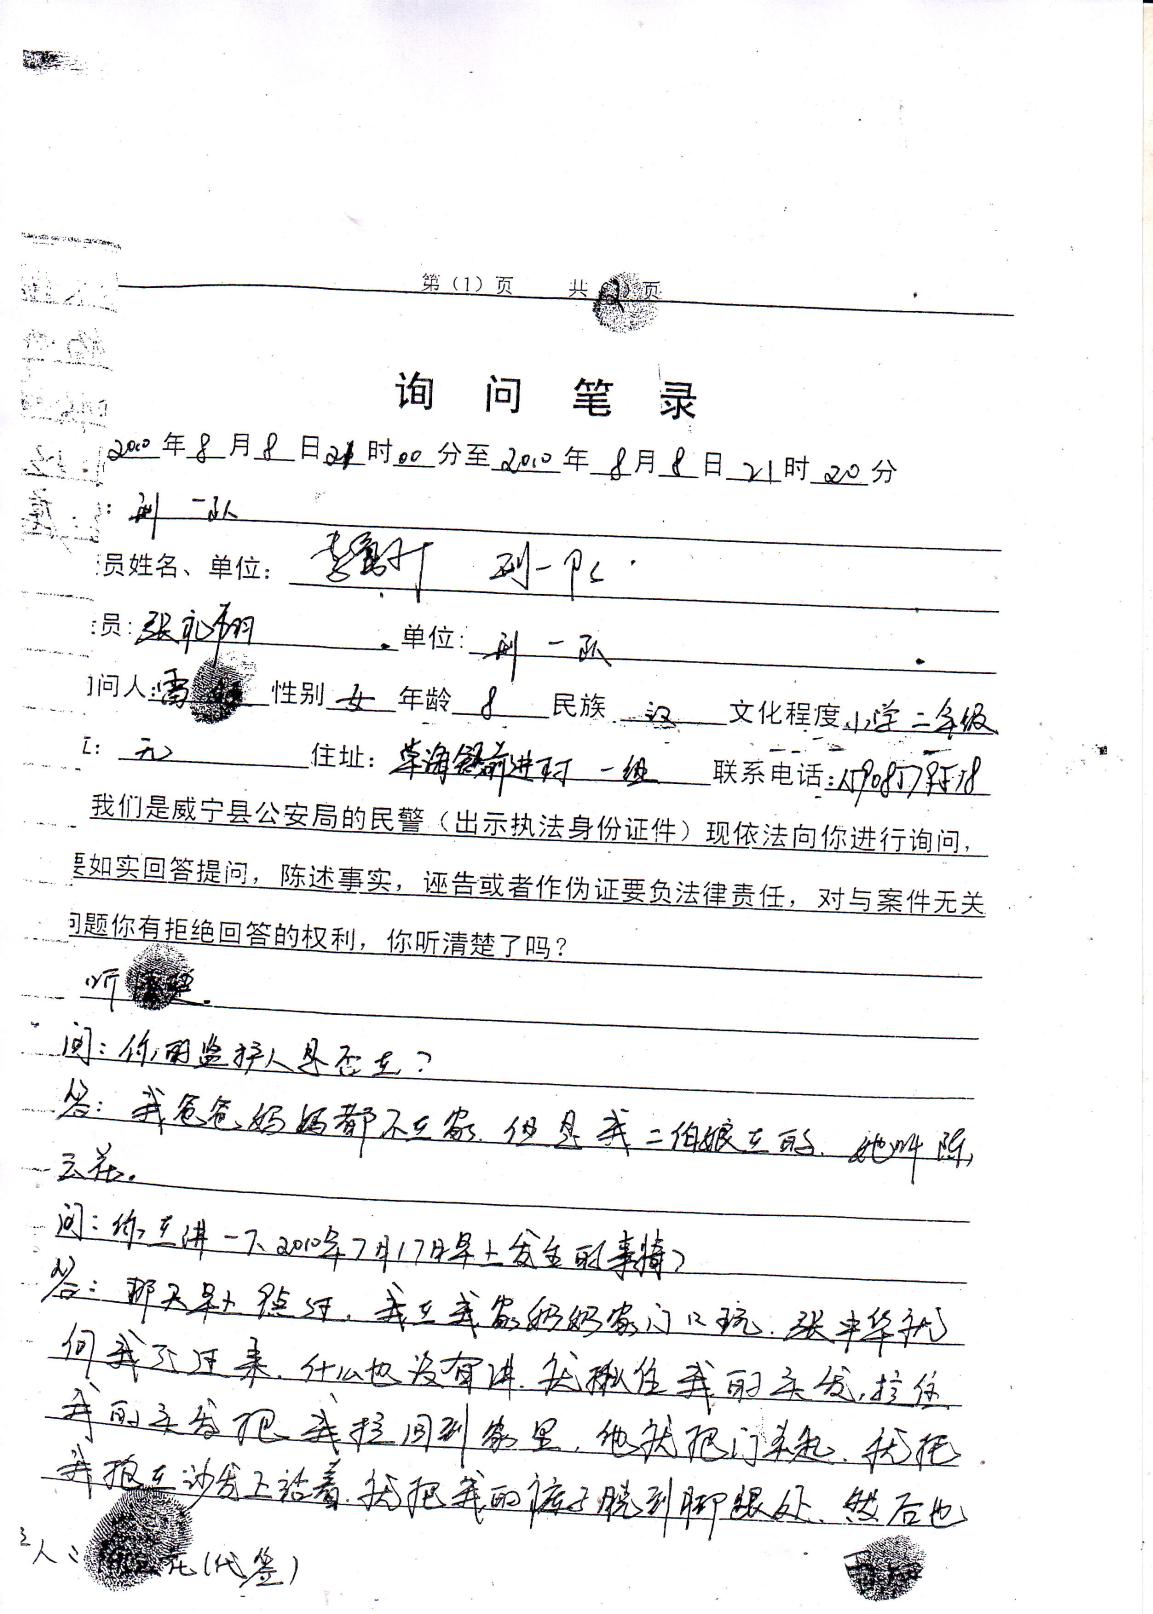 第（1）页 共 2 页
询问笔录
2010年8月8日21时00分至2010年8月8日21时20分
：刑一队
员姓名、单位： 刑一队
员：张礼翔 单位：刑一队
问人：雷 性别 女 年龄 8 民族 汉 文化程度 小学二年级
：无 住址：草海镇前进村一组 联系电话：
我们是威宁县公安局的民警（出示执法身份证件）现依法向你进行询问，
要如实回答提问，陈述事实，诬告或者作伪证要负法律责任，对与案件无关
问题你有拒绝回答的权利，你听清楚了吗？
听清楚。
问：你的监护人是否在？
答：我爸爸、妈妈都不在家，但是我二伯娘在的，她叫陈
云花。
问：你在讲一下2010年7月17日早上发生的事情？
答：那天早上 点过，我在我家奶奶家门口玩，张 华就
向我 过来，什么也没有讲，就揪住我的头发，拉住
我的头发把我拉回到家里，他就把门 起，就把
我抱在沙发上站着，就把我的裤子脱到脚跟处，然后他
人： 花（代签）